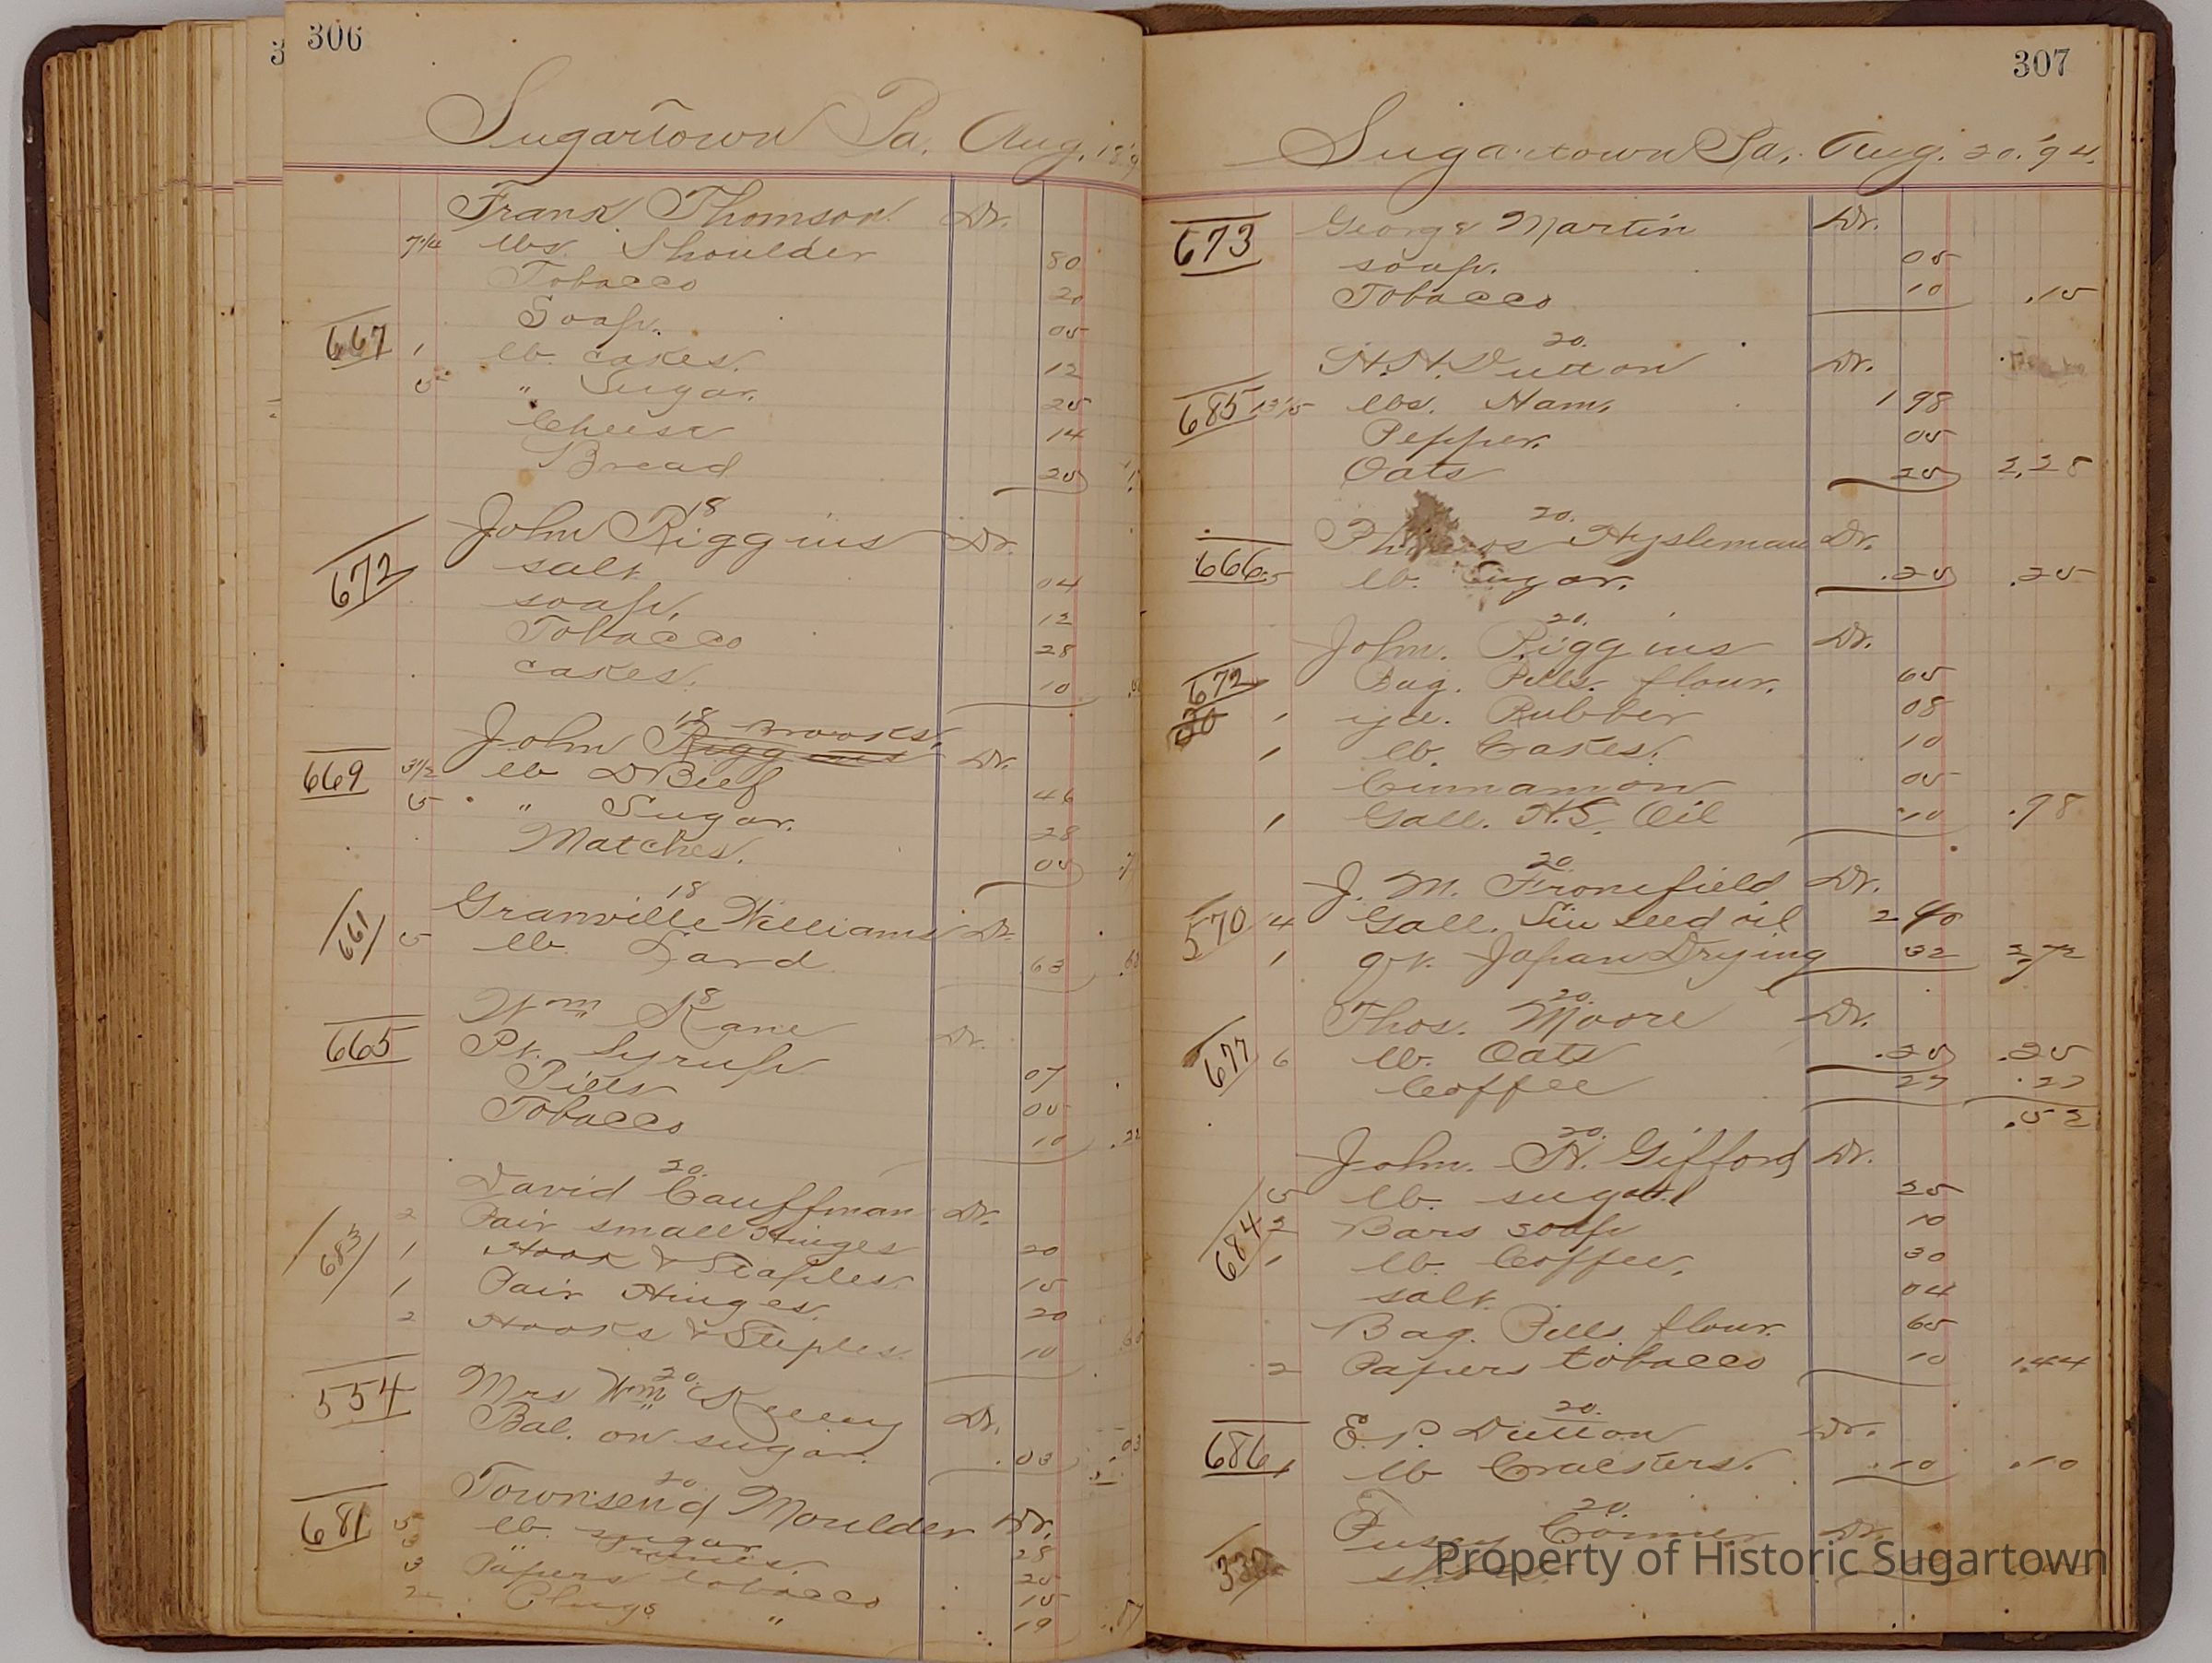 306
Sugartown Pa, Aug. 18 '9
Frank Thomson Dr.
7 1/4 lbs. Shoulder 80
Tobacco 20
Soap. 05
667 1 lb. cakes. 12
5 " Sugar. 25
Cheese 14
Bread 25
18
672 John Riggins Dr.
salt 04
soap. 12
Tobacco 28
cakes. 10
18
John Brooks. Dr.
669 3 1/2 lb D Beef 46
5 " Sugar. 28
Matches. 05
18
661 Granville Williams Dr.
5 lb Lard .63
18
Wm Kane Dr.
665 Pt. Syrup 07
Pills 05
Tobacco 10 .22
20
David Cauffman Dr.
683 2 Pair small Hinges 20
1 Hook & Staples. 15
1 Pair Hinges. 20
2 Hooks & Steples. 10
20
554 Mrs Wm Kelley Dr.
Bal. on sugar. .03 .03
20
Townsend Moulder Dr.
681 5 lb. sugar 28
3 " 25
3 Papers tobacco 15
2 Plugs " 19 .87
307
Sugartown Pa, Aug. 20. '94.
673 George Martin Dr.
soap. 05
Tobacco 10 .15
20.
H. H. Dutton Dr.
685 lbs. Ham. 1 98
Pepper. 05
Oats 25 2,28
20.
Hysleman Dr.
666 5 lb. Sugar. .25 .25
20.
John. Riggins Dr.
672 Bag. Pills. flour. 65
1 yd. Rubber 08
1 lb. Cakes. 10
Cinnamon 05
1 Gall. H.S. Oil 10 .98
20
J. M. Fronefield Dr.
570 4 Gall. Lin seed oil 2 40
1 qt. Japan Drying 32 2,72
20.
Thos. Moore Dr.
677 6 lb. Oats .25 .25
Coffee 27 .27
.52
20.
John. H. Gifford Dr.
684 5 lb. sugar. 25
2 Bars soap 10
1 lb. Coffee. 30
salt. 04
Bag. Pills flour. 65
2 Papers tobacco 10 1.44
20.
E. P. Dutton Dr.
686 1 lb Crackers. .10 .10
20.
Dr.
Property of Historic Sugartown